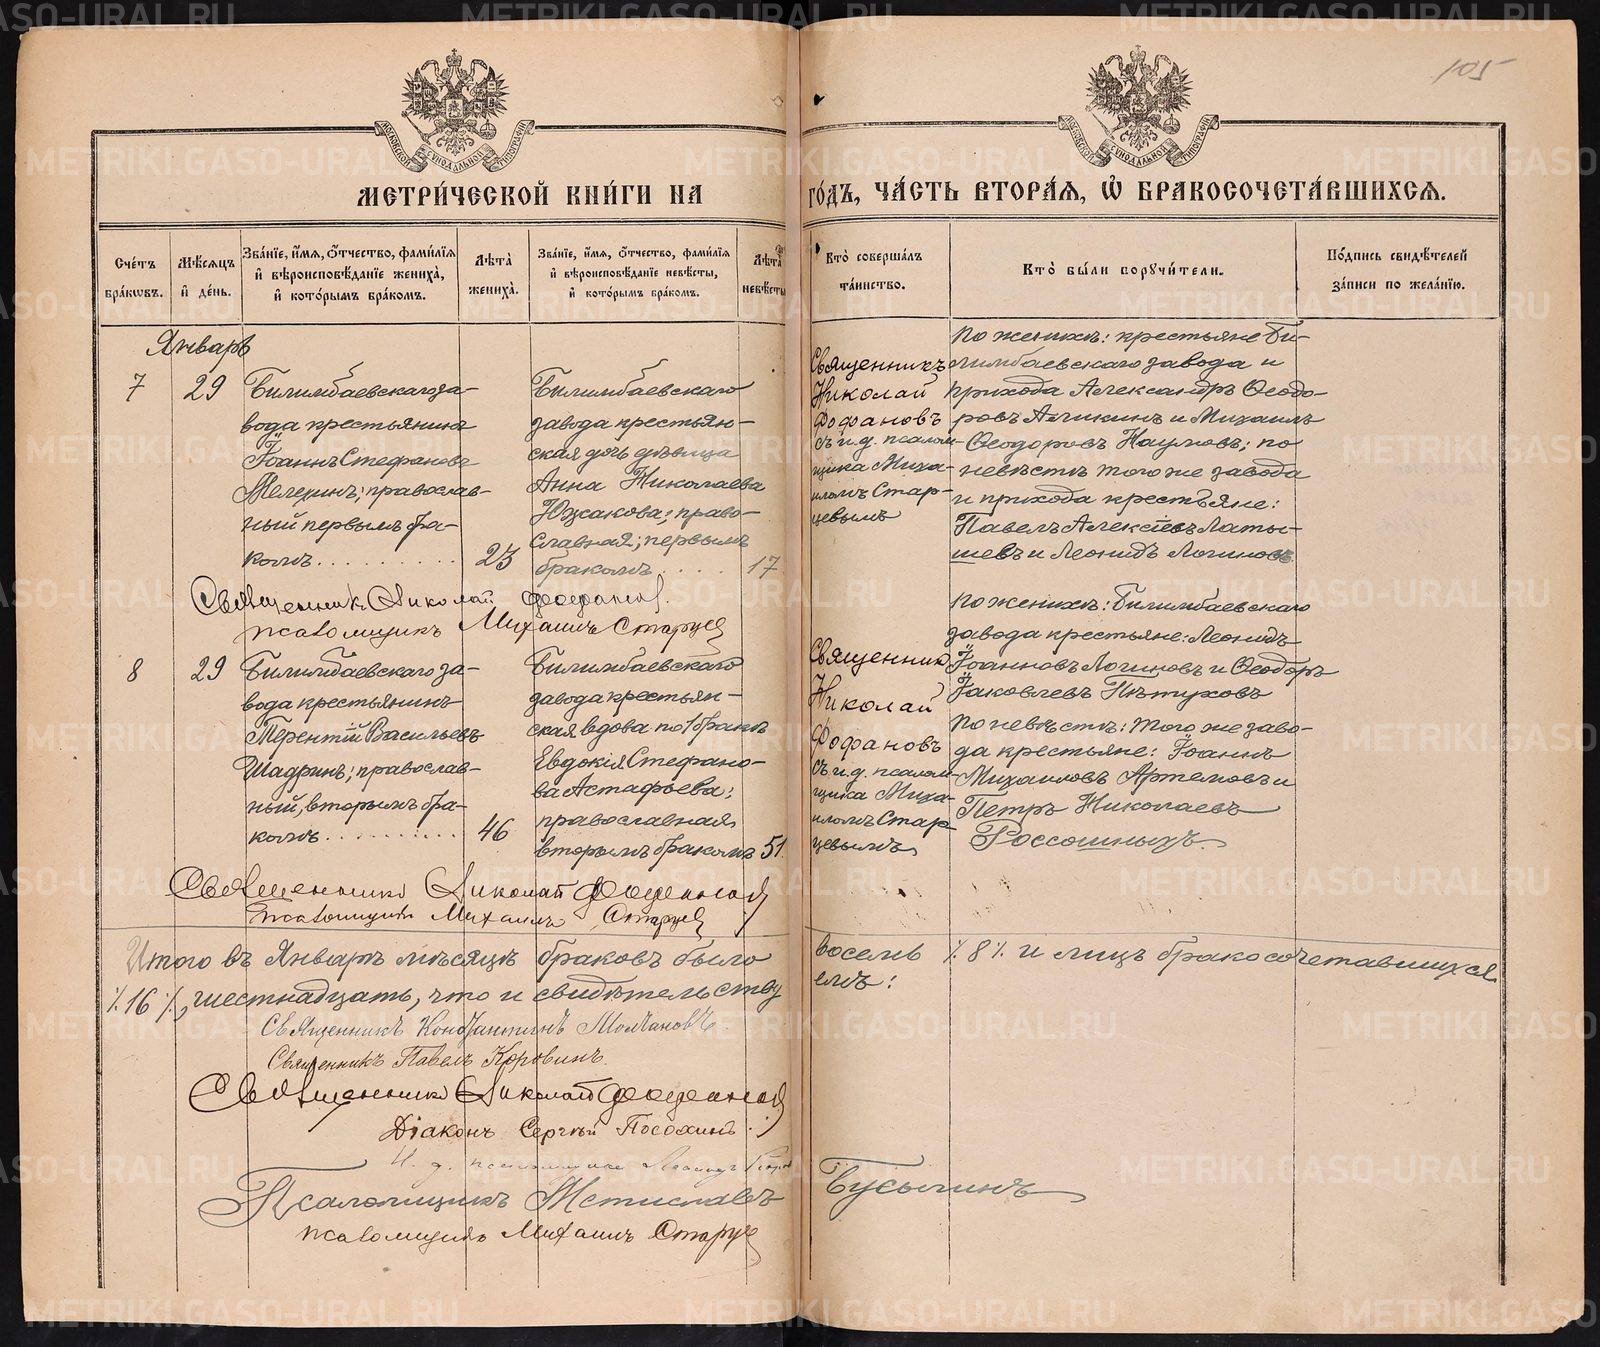 105
МЕТРИ́ЧЕСКОЙ КНИ́ГИ НА ГО́ДЪ, ЧА́СТЬ ВТОРА́Я, Ѽ БРАКОСОЧЕТА́ВШИХСЯ.
Сче́тъ бра́ковъ.
Мѣ́сяцъ и҆ де́нь.
Зва́нїе, и҆́мя, ѻ҆́тчество, фами́лїя и҆ вѣроисповѣ́данїе жениха̀, и҆ кото́рымъ бра́комъ.
Лѣта̀ жениха̀.
Зва́нїе, и҆́мя, ѻ҆́тчество, фами́лїя и҆ вѣроисповѣ́данїе невѣ́сты, и҆ кото́рымъ бра́комъ.
Лѣта̀ невѣ́сты
Кто̀ соверша́лъ та́инство.
Кто̀ бы́ли порꙋчи́тели.
По́дпись свидѣ́телей за́писи по жела́нїю.
Январь
7
29
Билимбаевскаго за-
вода крестьянинъ
Іоаннъ Стефановъ
Мелехинъ; православ-
ный первымъ бра-
комъ..........
23
Билимбаевскаго
завода крестьян-
ская дочь дѣвица
Анна Николаева
Южакова; право-
славная; первымъ
бракомъ....
17
Священникъ
Николай
Фофановъ
съ и.д. псалом-
щика Миха-
иломъ Стар-
цевымъ
По женихѣ: крестьяне Би-
лимбаевскаго завода и
прихода Александръ Ѳеодо-
ровъ Ачикинъ и Михаилъ
Ѳеодоровъ Наумовъ; по
невѣстѣ того же завода
и прихода крестьяне:
Павелъ Алексѣевъ Латы-
шевъ и Леонидъ Логиновъ.
Священникъ Николай Фофановъ.
псаломщикъ Михаилъ Старцев
8
29
Билимбаевскаго за-
вода крестьянинъ
Терентій Васильевъ
Шадринъ; православ-
ный, вторымъ бра-
комъ..........
46
Билимбаевскаго
завода крестьян-
ская вдова по 1 бракѣ
Евдокія Стефано-
ва Астафьева;
православная
вторымъ бракомъ
51.
Священник
Николай
Фофановъ
съ и.д. псалом-
щика Миха-
иломъ Стар
цевымъ
По женихѣ: Билимбаевскаго
завода крестьяне: Леонидъ
Іоанновъ Логиновъ и Ѳеодоръ
Іаковлевъ Пѣтуховъ
По невѣстѣ: того же заво-
да крестьяне: Іоаннъ
Михаиловъ Артемовъ и
Петръ Николаевъ
Россошныхъ.
Священникъ Николай Фофановъ
псаломщикъ Михаилъ Старцев
Итого въ Январѣ мѣсяцѣ браковъ было восемь ٪ 8 ٪ и лицъ бракосочетавшихся
٪ 16 ٪, шестнадцать, что и свидѣтельству емъ:
Священникъ Константинъ Молчановъ.
Священникъ Павелъ Коровинъ
Священникъ Николай Фофановъ
Діаконъ Сергѣй Посохинъ
И. д. псаломщика
Псаломщикъ Мстиславъ Бусыгинъ
псаломщикъ Михаилъ Старцев